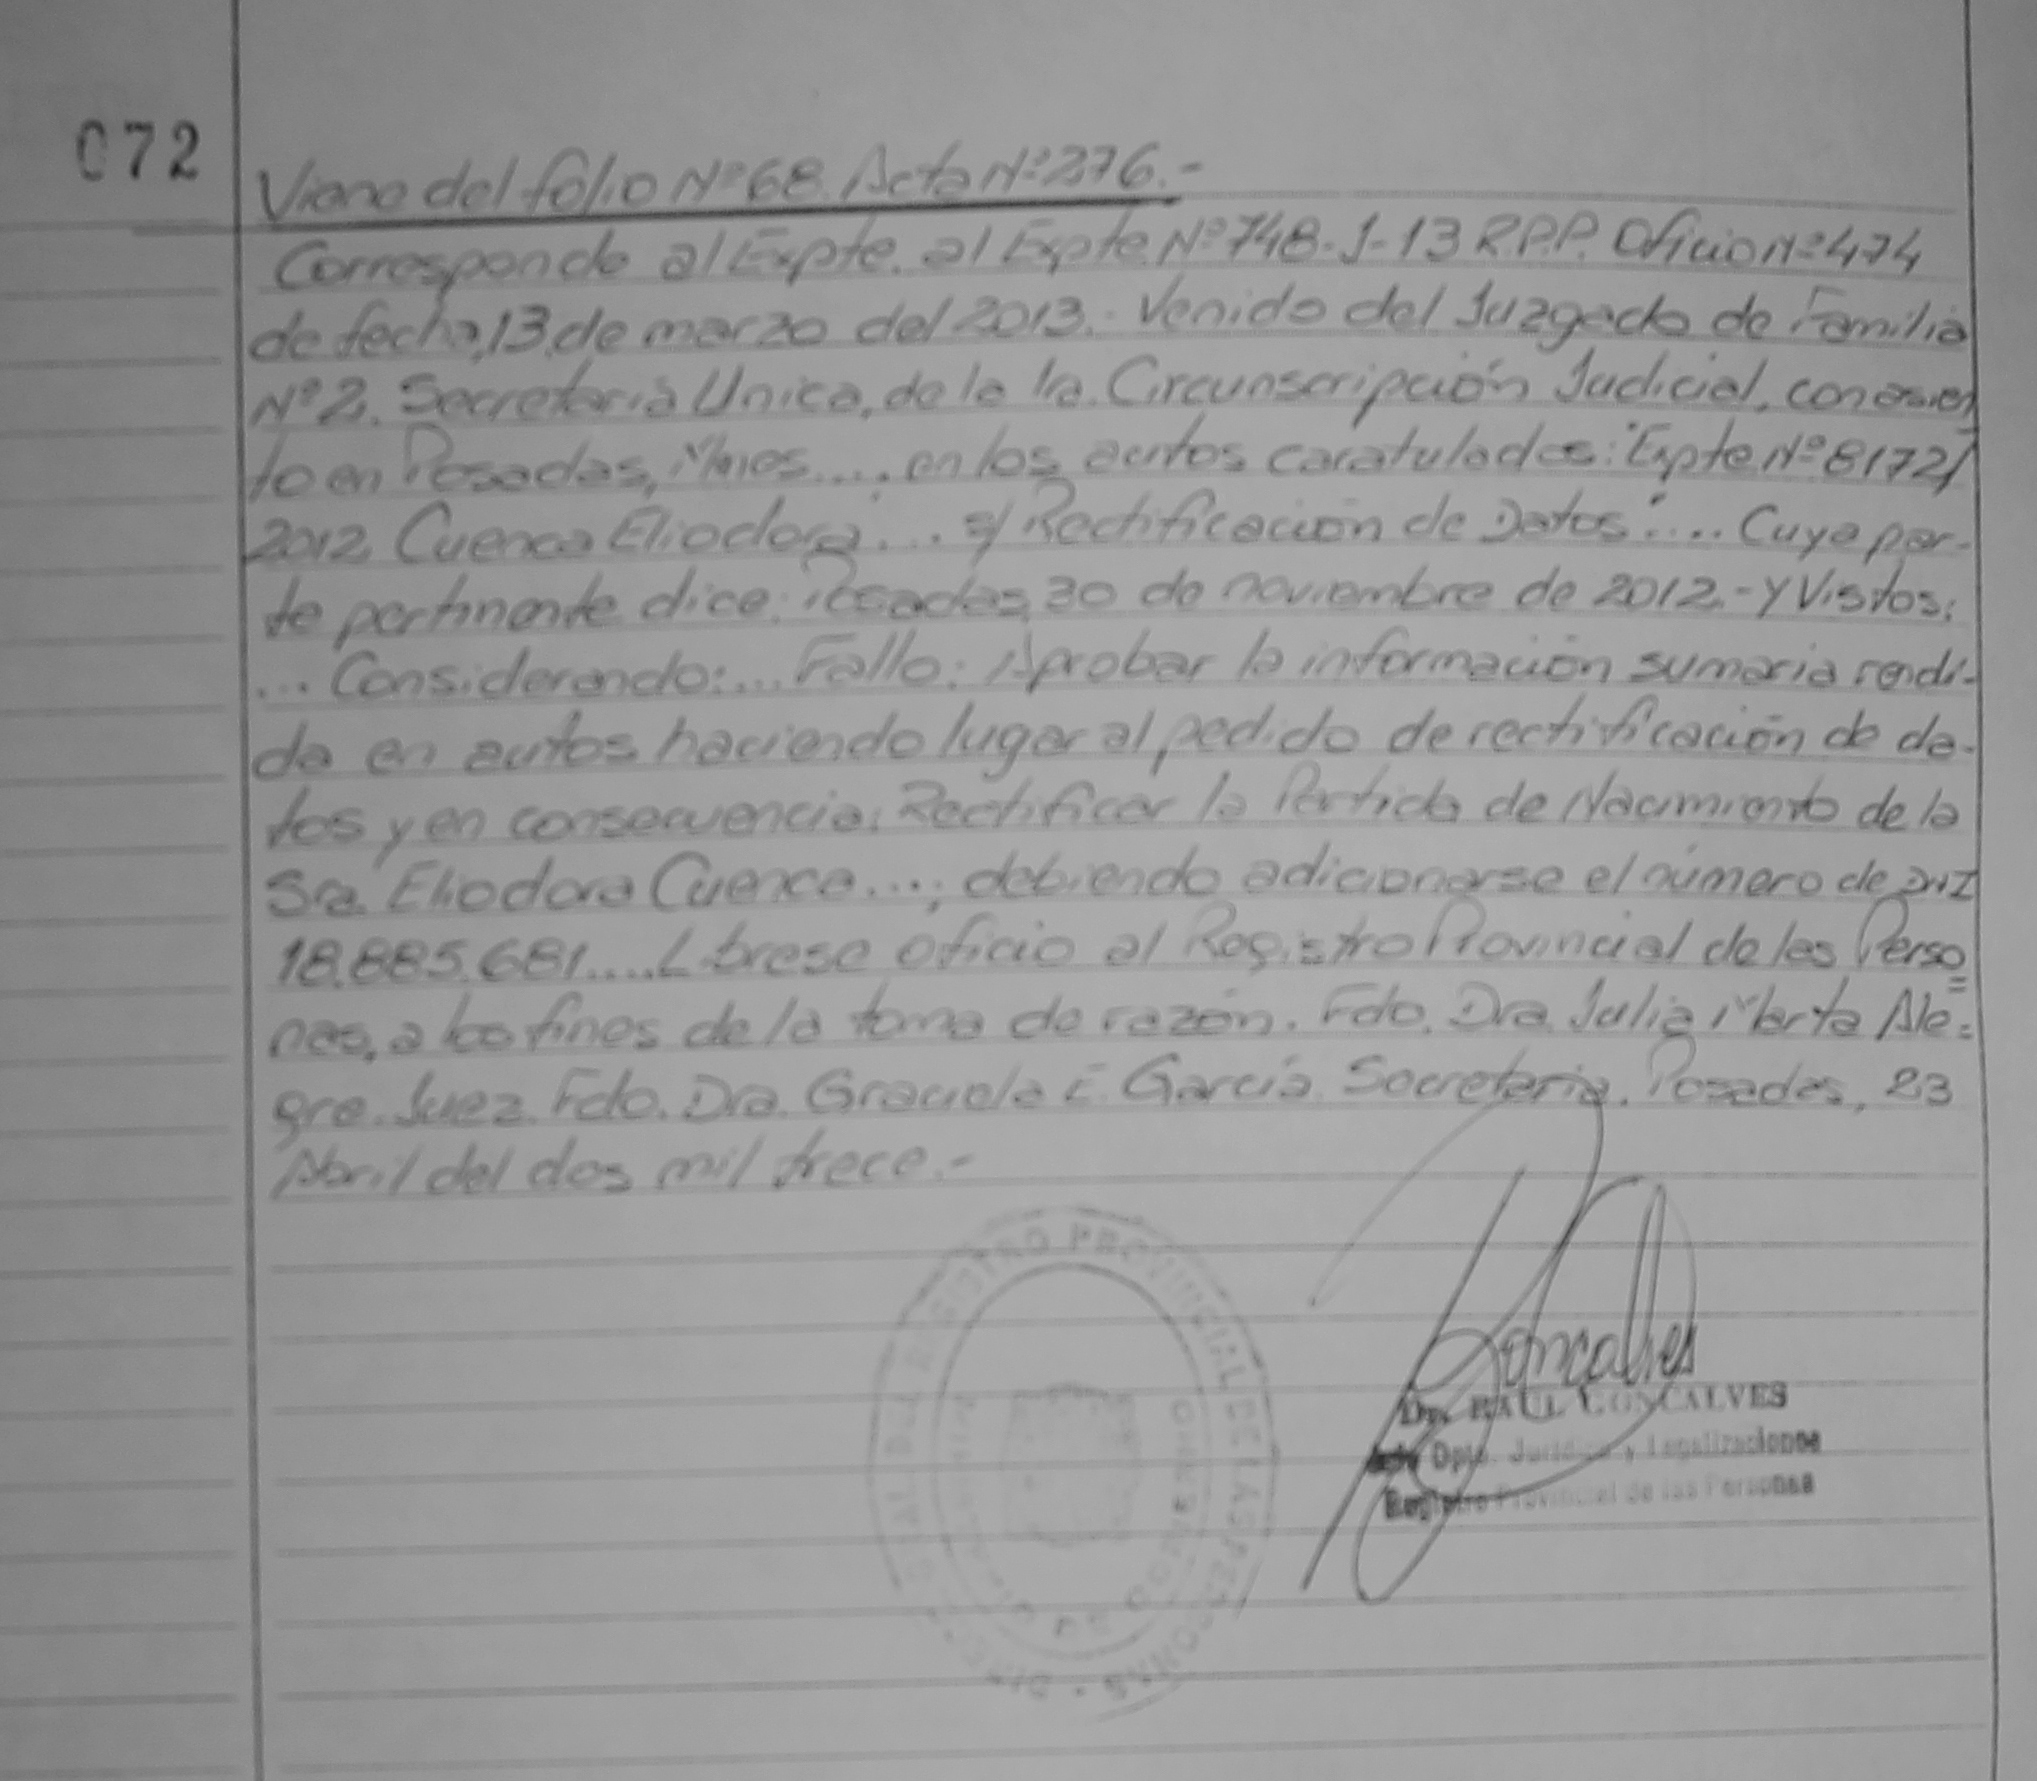 072
Viene del folio Nº 68. Acta Nº 276.-
Corresponde al Expte. al Expte Nº 748-J-13 R.P.P. Oficio Nº 474
de fecha, 13, de marzo del 2013.- Venido del Juzgado de Familia
Nº 2. Secretaria Unica, de la 1ra. Circunscripción Judicial, con asien
to en Posadas, Mnes.... en los autos caratulados: "Expte Nº 8172/
2012 Cuenca Eliodora ... s/ Rectificación de Datos".... Cuya par-
te pertinente dice: Posadas, 30 de noviembre de 2012.- Y Vistos:
... Considerando:... Fallo: Aprobar la información sumaria rendi-
da en autos haciendo lugar al pedido de rectificación de da-
tos y en consecuencia: Rectificar la Partida de Nacimiento de la
Sra. Eliodora Cuenca...; debiendo adicionarse el número de DNI
18.885.681.... Librese oficio al Registro Provincial de las Perso
nas, a los fines de la toma de razón. Fdo. Dra. Julia Marta Ale=
gre. Juez. Fdo. Dra. Graciela E. García. Secretaria. Posadas, 23
Abril del dos mil trece.-
Goncalves
Dr. RAUL GONCALVES
Dpto. Jurídico y Legalizaciones
Registro Provincial de las Personas
REGISTRO PROVINCIAL DE LAS PERSONAS
DE GOBIERNO